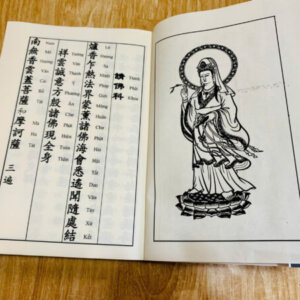 請佛科
Thỉnh Phật Khoa
爐香乍熱法界蒙薰諸佛海會悉遙聞隨處結
Hương Sạ Nhiệt Pháp Giới Mông Huân Chư Phật Hải Hội Tất Dao Văn Tùy Xứ Kết
祥雲誠意方殷諸佛現全身
Tường Vân Thành Ý Phương Ân Chư Phật Hiện Toàn Thân
南無香雲蓋菩薩和摩訶薩 三遍
Nam Mô Hương Vân Cái Bồ Tát Ma Ha Tát